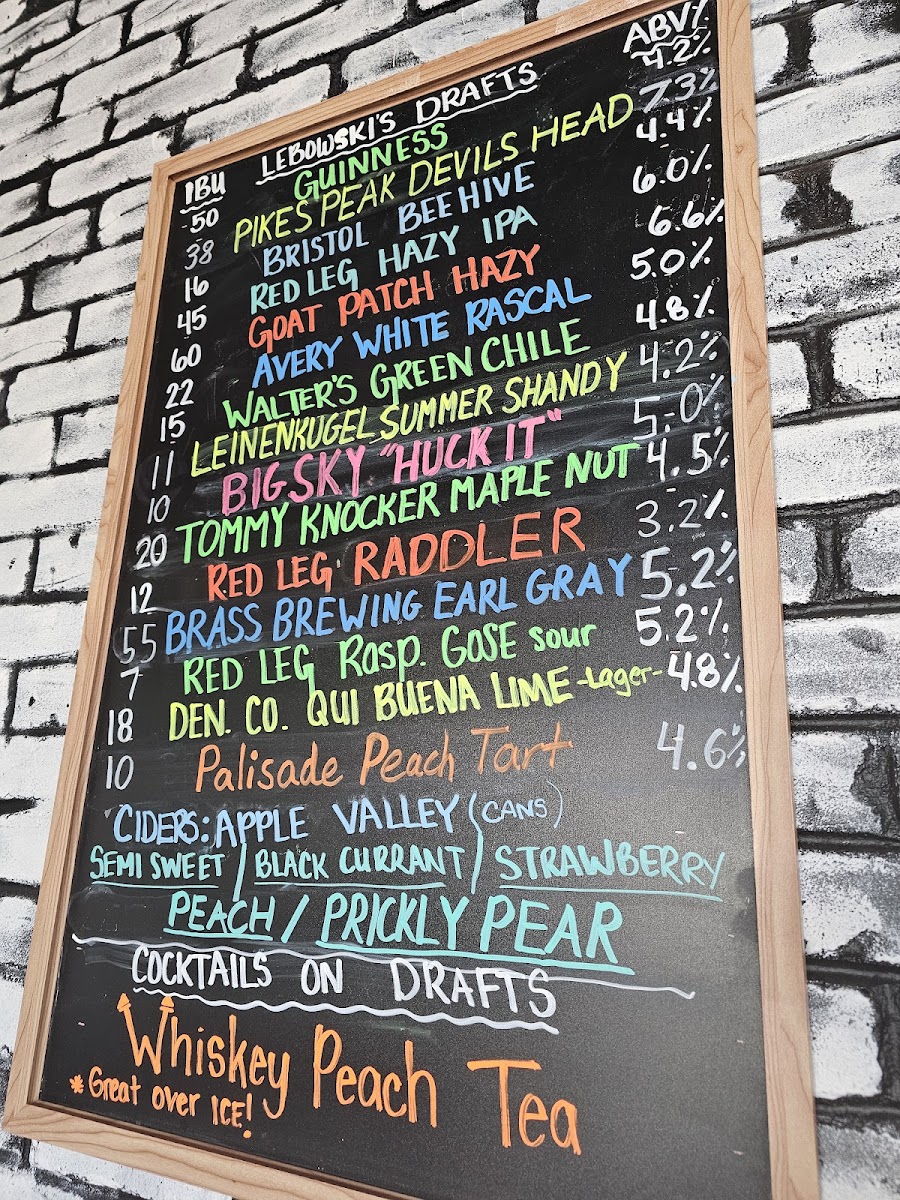 IBU LEBOWSKI'S DRAFTS ABV%
50 GUINNESS 4.2%
38 PIKES PEAK DEVILS HEAD 7.3%
16 BRISTOL BEEHIVE 4.4%
45 RED LEG HAZY IPA 6.0%
60 GOAT PATCH HAZY 6.6%
22 AVERY WHITE RASCAL 5.0%
15 WALTER'S GREEN CHILE 4.8%
11 LEINENKUGEL SUMMER SHANDY 4.2%
10 BIG SKY "HUCK IT" 5.0%
20 TOMMY KNOCKER MAPLE NUT 4.5%
12 RED LEG RADDLER 3.2%
55 BRASS BREWING EARL GRAY 5.2%
7 RED LEG Rasp. GOSE sour 5.2%
18 DEN. CO. QUI BUENA LIME -Lager- 4.8%
10 Palisade Peach Tart 4.6%
CIDERS: APPLE VALLEY (CANS)
SEMI SWEET / BLACK CURRANT / STRAWBERRY
PEACH / PRICKLY PEAR
COCKTAILS ON DRAFTS
Whiskey Peach Tea
* Great over ICE!